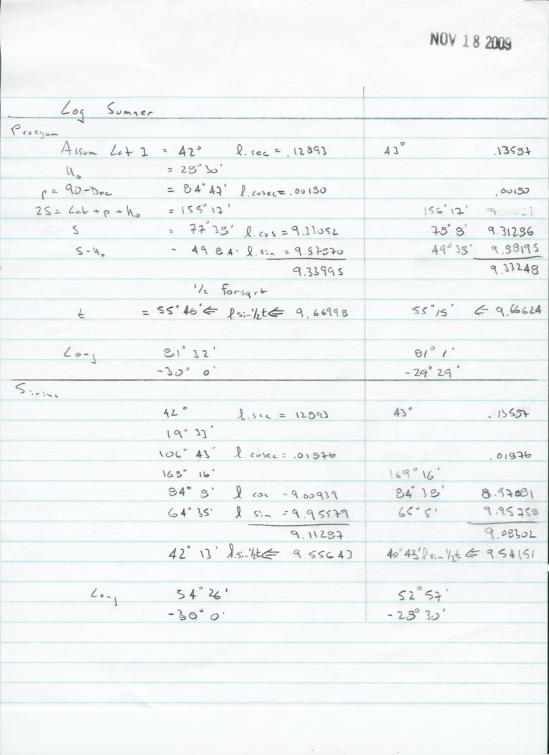 NOV 18 2009
Log Sumner
Procyon
Assum Lat I = 42° l.sec = .12893 43° .13587
H₀ = 28° 30'
p = 90-Dec = 84° 47' l.cosec = .00180 .00180
2S = Lat + p + H₀ = 155° 17' 156° 17'
S = 77° 38' l.cos = 9.33052 78° 8' 9.31286
S-H₀ = 49 8 l.sin = 9.87870 49° 38' 9.88195
9.33995 9.33248
1/2 for sqrt
t = 55° 46' ⇐ l.sin ½t ⇐ 9.66998 55° 15' ⇐ 9.66624
Long 81° 32' 81° 1'
-30° 0' -29° 29'
Sirius
42° l.sec = 12893 43° .13587
19° 33'
106° 43' l.cosec = .01876 .01876
168° 16' 169° 16'
84° 8' l cos - 9.00939 84° 38' 8.97081
64° 35' l sin = 9.95579 65° 5' 9.95758
9.11287 9.08302
42° 13' l.sin ½t ⇐ 9.55643 40° 43' l sin ½t ⇐ 9.54151
Long 54° 26' 52° 57'
-30° 0' -28° 30'